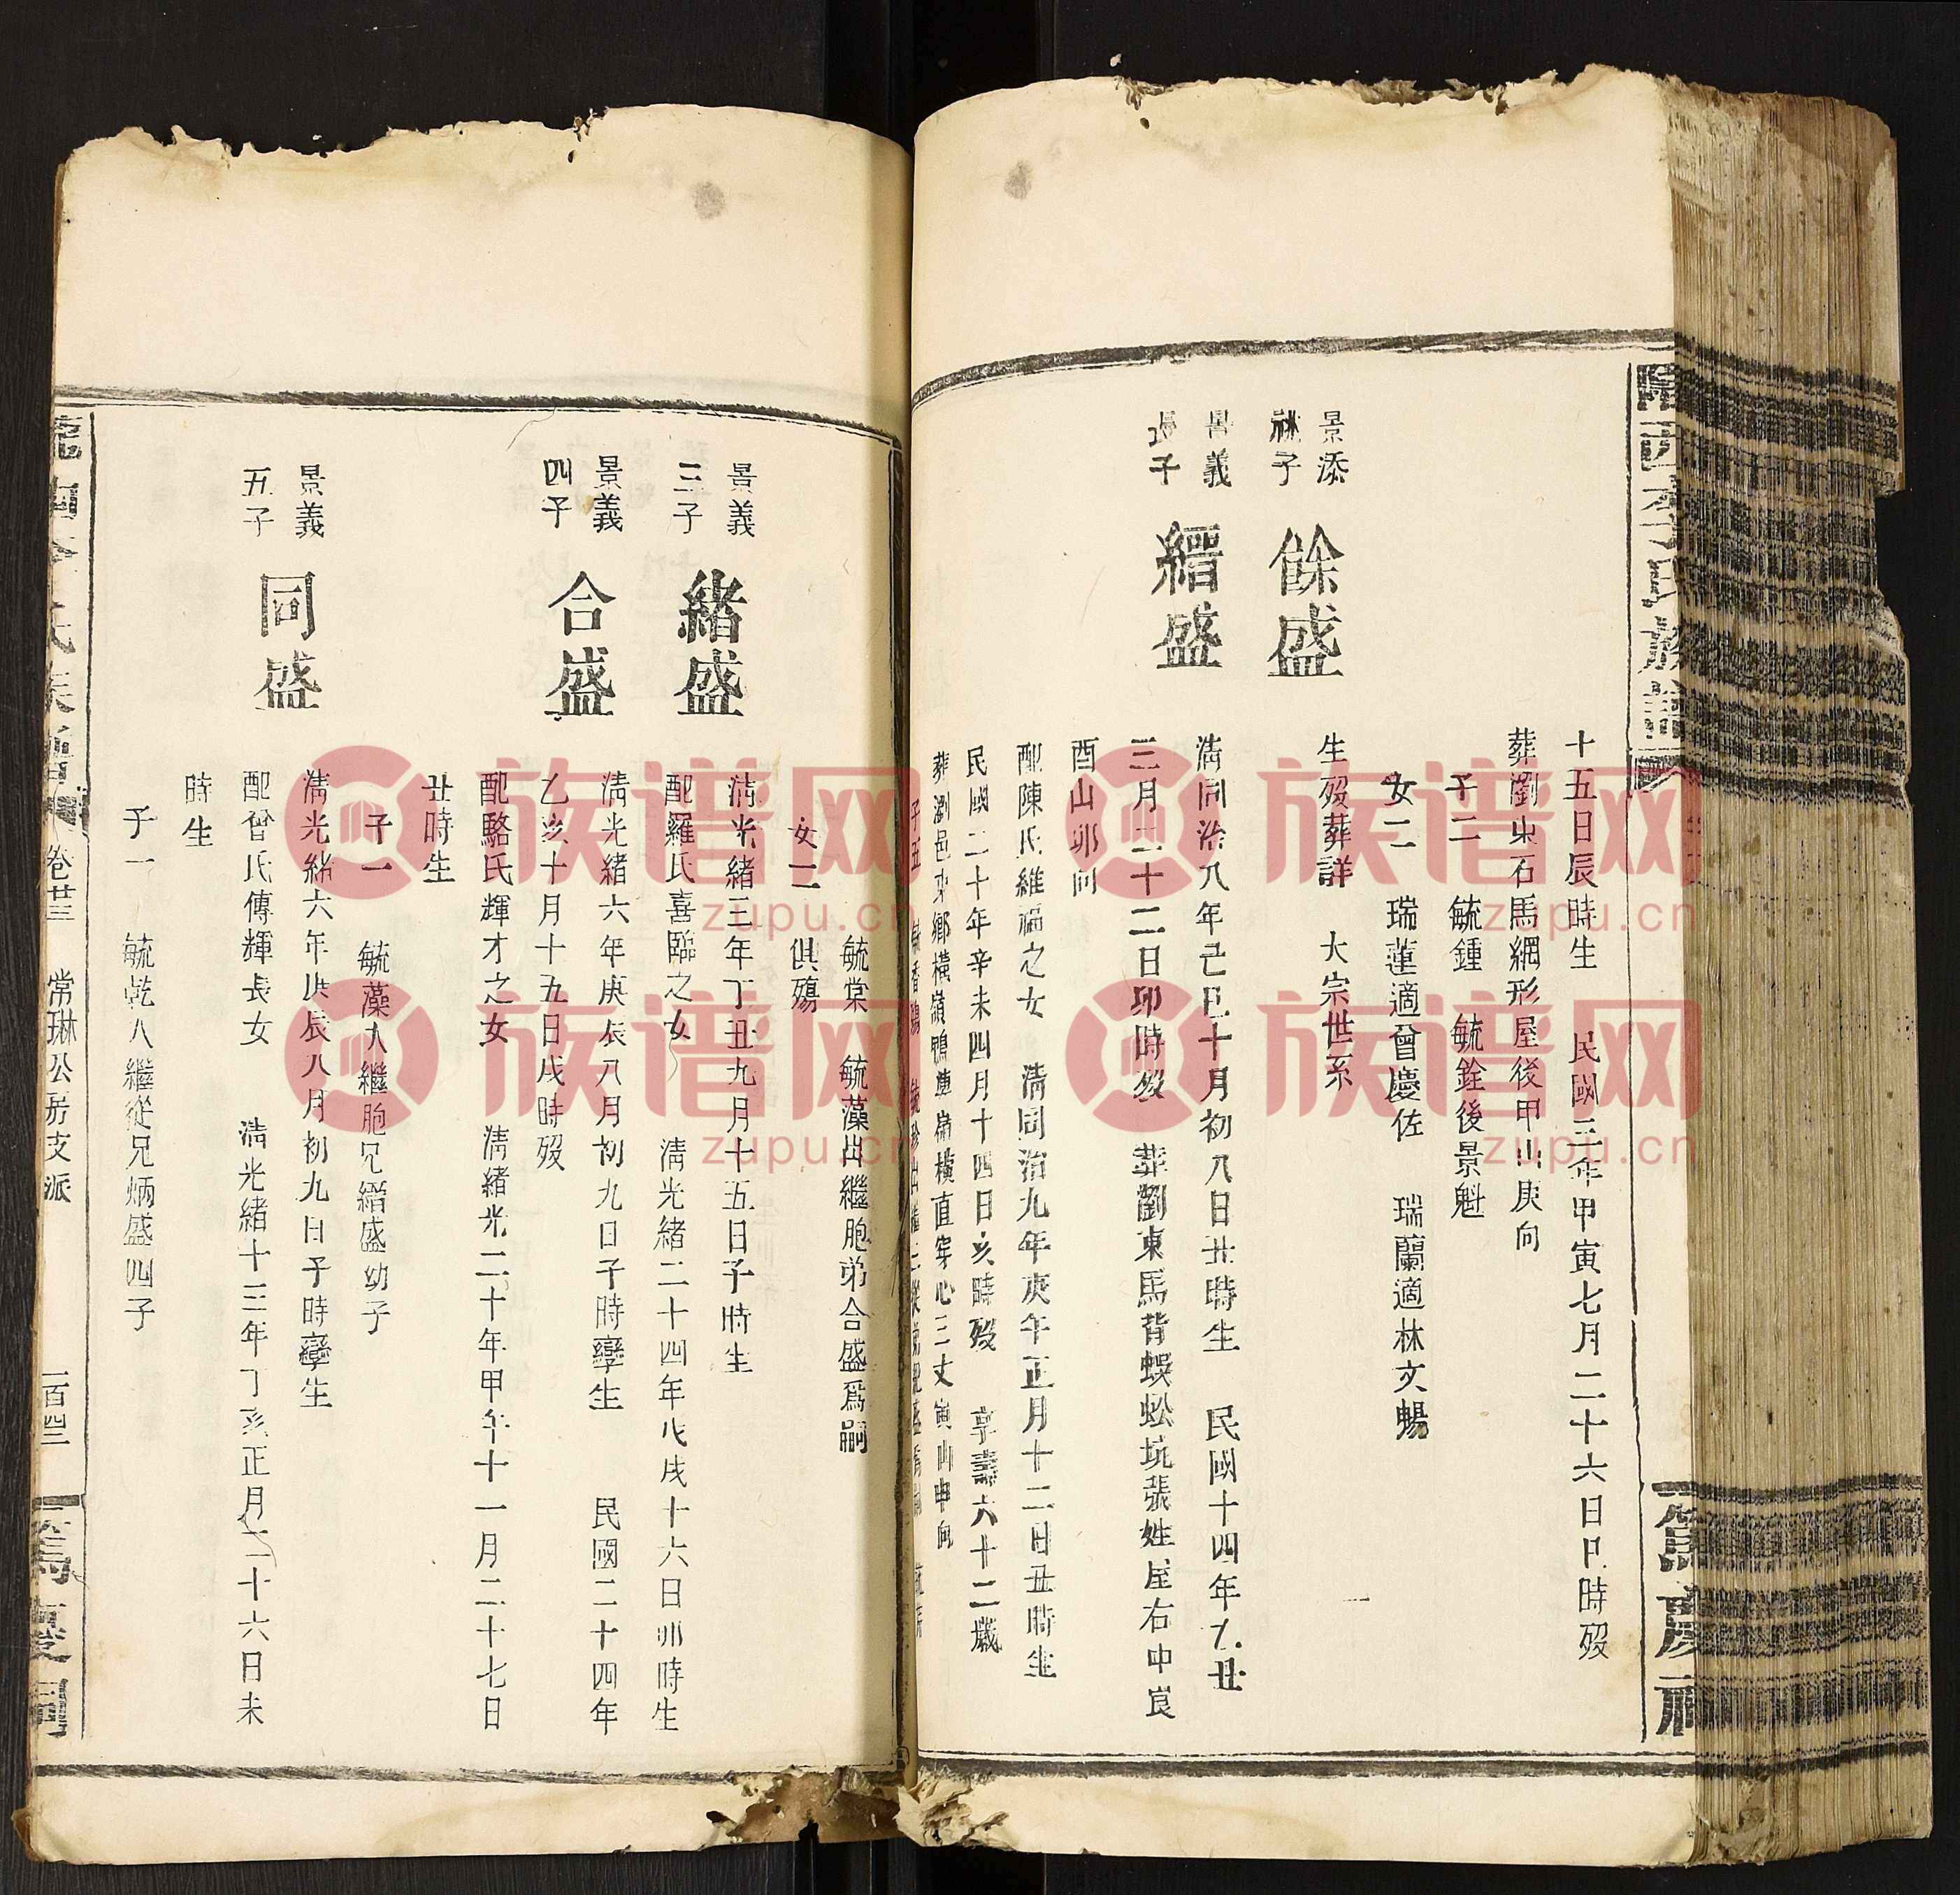 西李氏族譜
篤慶祠
十五日辰時生　民國三年甲寅七月二十六日巳時歿
葬瀏東石馬網形屋後甲山庚向
子二　毓鍾　毓銓後景魁
女二　瑞蓮適曾慶佐　瑞蘭適林文暢
景添
祧子
餘盛
生歿葬詳　大宗世系
景義
長子
縉盛
清同治八年己巳十月初八日丑時生　民國十四年乙丑
三月二十二日卯時歿　葬瀏東馬背蜈蚣坑張姓屋右中艮
酉山卯向
配陳氏維福之女　清同治九年庚午正月十二日丑時生
民國二十年辛未四月十四日亥時歿　享壽六十二歲
葬瀏邑東鄉橫嶺鴨 橫直穿心三丈寅山申向
子五　毓香殤
毓棠　毓藻出繼胞弟合盛爲嗣
女二　俱殤
景義
三子
緒盛
清光緒三年丁丑九月十五日子時生
配羅氏喜臨之女　清光緒二十四年戊戌十六日卯時生
景義
四子
合盛
清光緒六年庚辰八月初九日子時孿生　民國二十四年
乙亥十月十五日戌時歿
配駱氏輝才之女　清緒光二十年甲午十一月二十七日
丑時生
子一　毓藻入繼胞兄縉盛幼子
景義
五子
同盛
清光緒六年庚辰八月初九日子時孿生
配曾氏傳輝長女　清光緒十三年丁亥正月二十六日未
時生
子一　毓乾入繼從兄炳盛四子
氏族譜　卷廿三　常琳公房支派　一百四三　篤慶祠
族谱网
zupu.cn
族谱网
zupu.cn
族谱网
zupu.cn
族谱网
zupu.cn